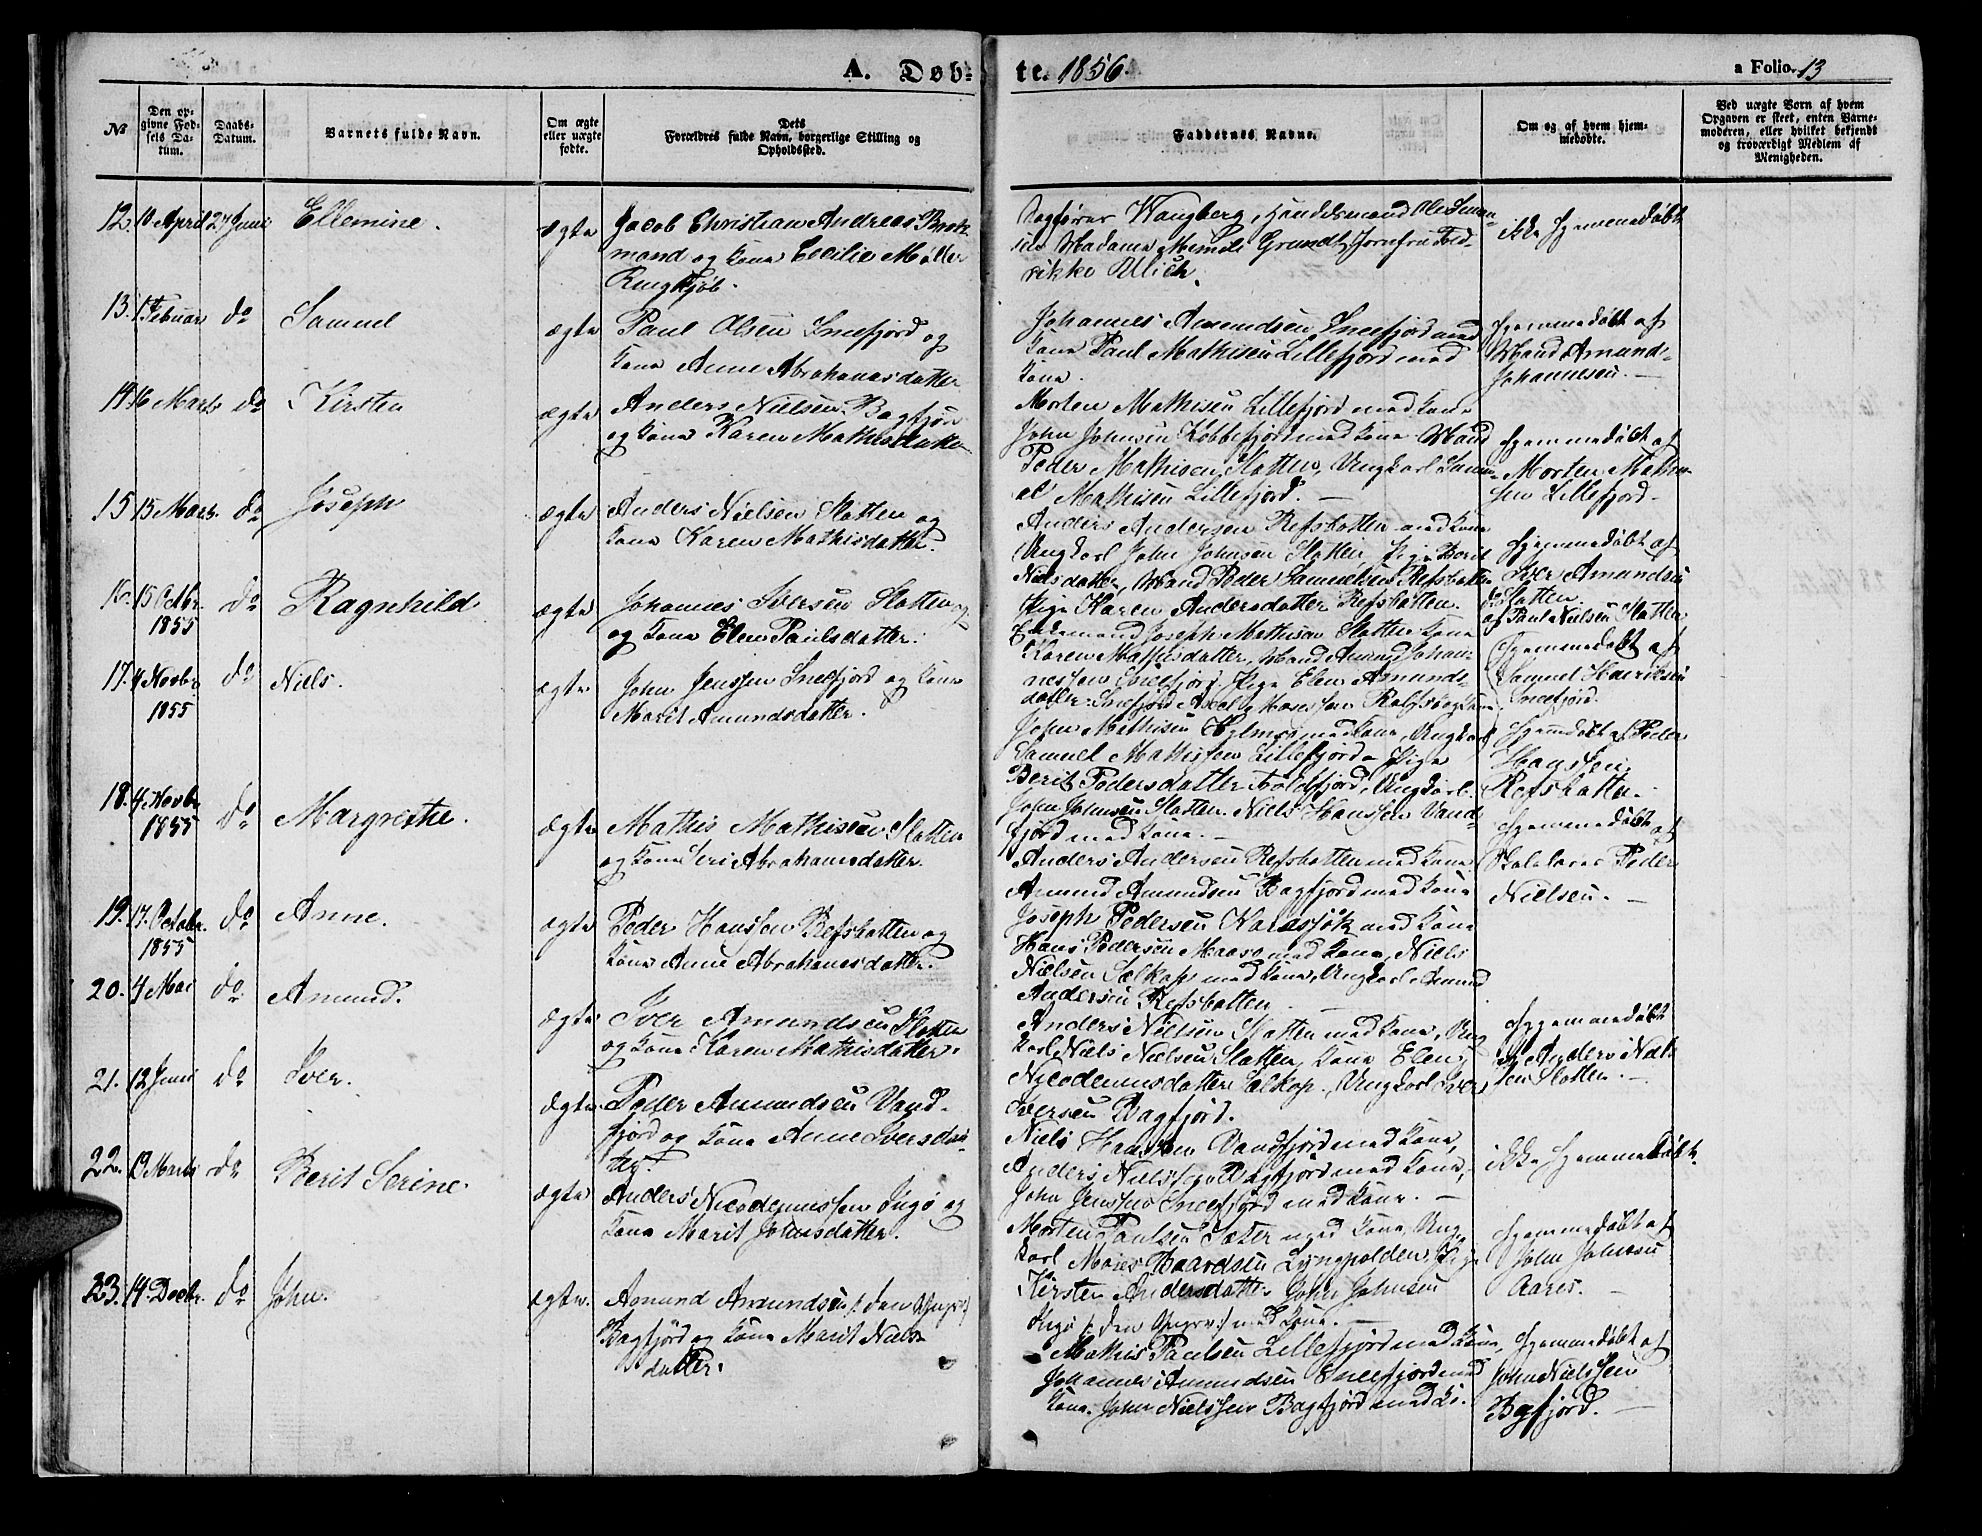 A. Døb-
te. 1856.
a Folio. 13
№
Den op-
givne Fød-
sels Da-
tum.
Daabs-
Datum.
Barnets fulde Navn.
Om ægte
eller uægte
fødte.
Dets
Forældres fulde Navn, borgerlige Stilling og
Opholdssted.
Faddernes Navne.
Om og af hvem hjem-
medøbte.
Ved uægte Børn af hvem
Opgaven er skeet, enten Barne-
moderen, eller hvilket bekjendt
og troværdigt Medlem af
Menigheden.
12. 10 April 27 Juni Ellemine. ægte
Jacob Christian Andreas
mand og kone Cecilie Møller
Wangberg, Handelsmand Ole
Madame Grundt, Jomfru
rikke Ulich.
ikke hjemmedøbt
13. 1 Februar do Samuel ægte
Paul Olsen Sneefjord og
kone Anne Abrahamsdatter
Johannes Amundsen Sneefjord med
kone Paul Mathisen Lillefjord med
kone.
Hjemmedøbt af
Mand Amund
Johannesen. —
14. 16 Marts do Kirsten ægte
Anders Nielsen Bagfjord
og kone Karen Mathisdatter
Morten Mathisen Lillefjord med kone
John Johnsen Kobbefjord med kone. Mand
Peder Mathisen Slotten, Ungkarl Samu-
el Mathisen Lillefjord. —
Hjemmedøbt af
Morten Mathi-
sen Lillefjord.
15 15 Marts. do Joseph ægte
Anders Nielsen Slotten og
kone Karen Mathisdatter.
Anders Andersen Refsbotten med kone
Ungkarl John Johnsen Slotten, Pige Berit
Nielsdatter, Mand Peder Samuelsen Refsbotten
Pige Karen Andersdatter Refsbotten.
Hjemmedøbt af
Iver Amundsen
Slotten.
16. 15 Octbr. 1855 do Ragnhild ægte
Johannes Iversen Slotten og
og kone Elen Paulsdatter.
Enkemand Joseph Mathisen Slotten kone
Karen Mathisdatter, Mand Amund Johan-
nessen Sneefjord, Pige Elen Amunds-
datter Sneefjord
og Paul Nielsen Slotten
17. 4 Novbr 1855 do Niels. ægte
John Jenssen Sneefjord og kone
Marit Amundsdatter.
John Mathisen med kone, Ungkarl
Samuel Mathissen Lillefjord. Pige
Berit Pedersdatter Ungkarl
Hjemmedøbt af
Samuel Henriksen
Sneefjord.
18. 4 Novbr 1855 do Margrethe. ægte
Mathis Mathisen Slotten
og kone Seri Abrahamsdatter.
John Johnsen Slotten. Niels Hanssen Vand-
fjord med kone. —
Anders Andersen Refsbotten med kone
Hjemdøbt af Peder
Hanssen
Refsbotten.
19. 17. October. 1855 do Anne. ægte
Peder Hanssen Refsbotten og
kone Anne Abrahamsdatter.
Amund Amundsen Bagfjord med kone
Joseph Pedersen Karasjok med kone
Hans Pedersen Maasø med kone, Niels
Nielsen Selkop med kone, Ungkarl Amund
Andersen Refsbotten —
Hjemmedøbt af
Skolelærer Peder
Nielsen. —
20. 4 Mai do Amund. ægte
Iver Amundsen Slotten
og kone Karen Mathisdatter.
Anders Nielsen Slotten med kone, Ung
karl Niels Nielsen Slotten, kone Elen
Nicodemusdatter Selkop, Ungkarl Iver
Iversen Bagfjord.
Hjemmedøbt
af Anders Niel-
sen Slotten. —
21. 12 Juni do Iver. ægte
Peder Amundsen Vand-
fjord og kone Anne Iversdat-
ter.
Niels Hanssen Vandfjord med kone,
Anders Nielssen Bagfjord med kone,
John Jenssen Sneefjord med kone. —
ikke hjemmedøbt.
22. 19 Marts do Berit Serine. ægte
Anders Nicodemussen Ingø og
kone Marit Johnsdatter.
Morten Paulsen Sæter med kone, Ung-
karl Moses Baardsen Lyngpolden, Pige
Kirsten Andersdatter John Johnsen
Ingø /: den Yngre:/ med kone. —
Hjemmedøbt af
John Johnsen
Aares.
23. 14. Decbr. do John. ægte.
Amund Amundsen /: den Yngre:/
Bagfjord og kone Marit Niels-
datter.
Mathis Paulsen Lillefjord med kone,
Johannes Amundsen Sneefjord med
kone. John Nielssen Bagfjord med
Hjemmedøbt af
John Nielssen
Bagfjord. —